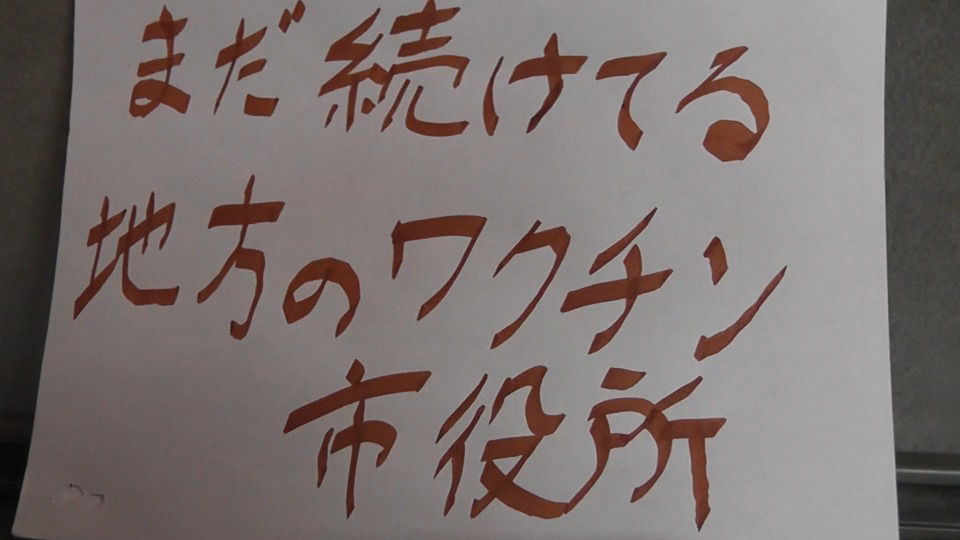 まだ続けてる
地方のワクチン
市役所